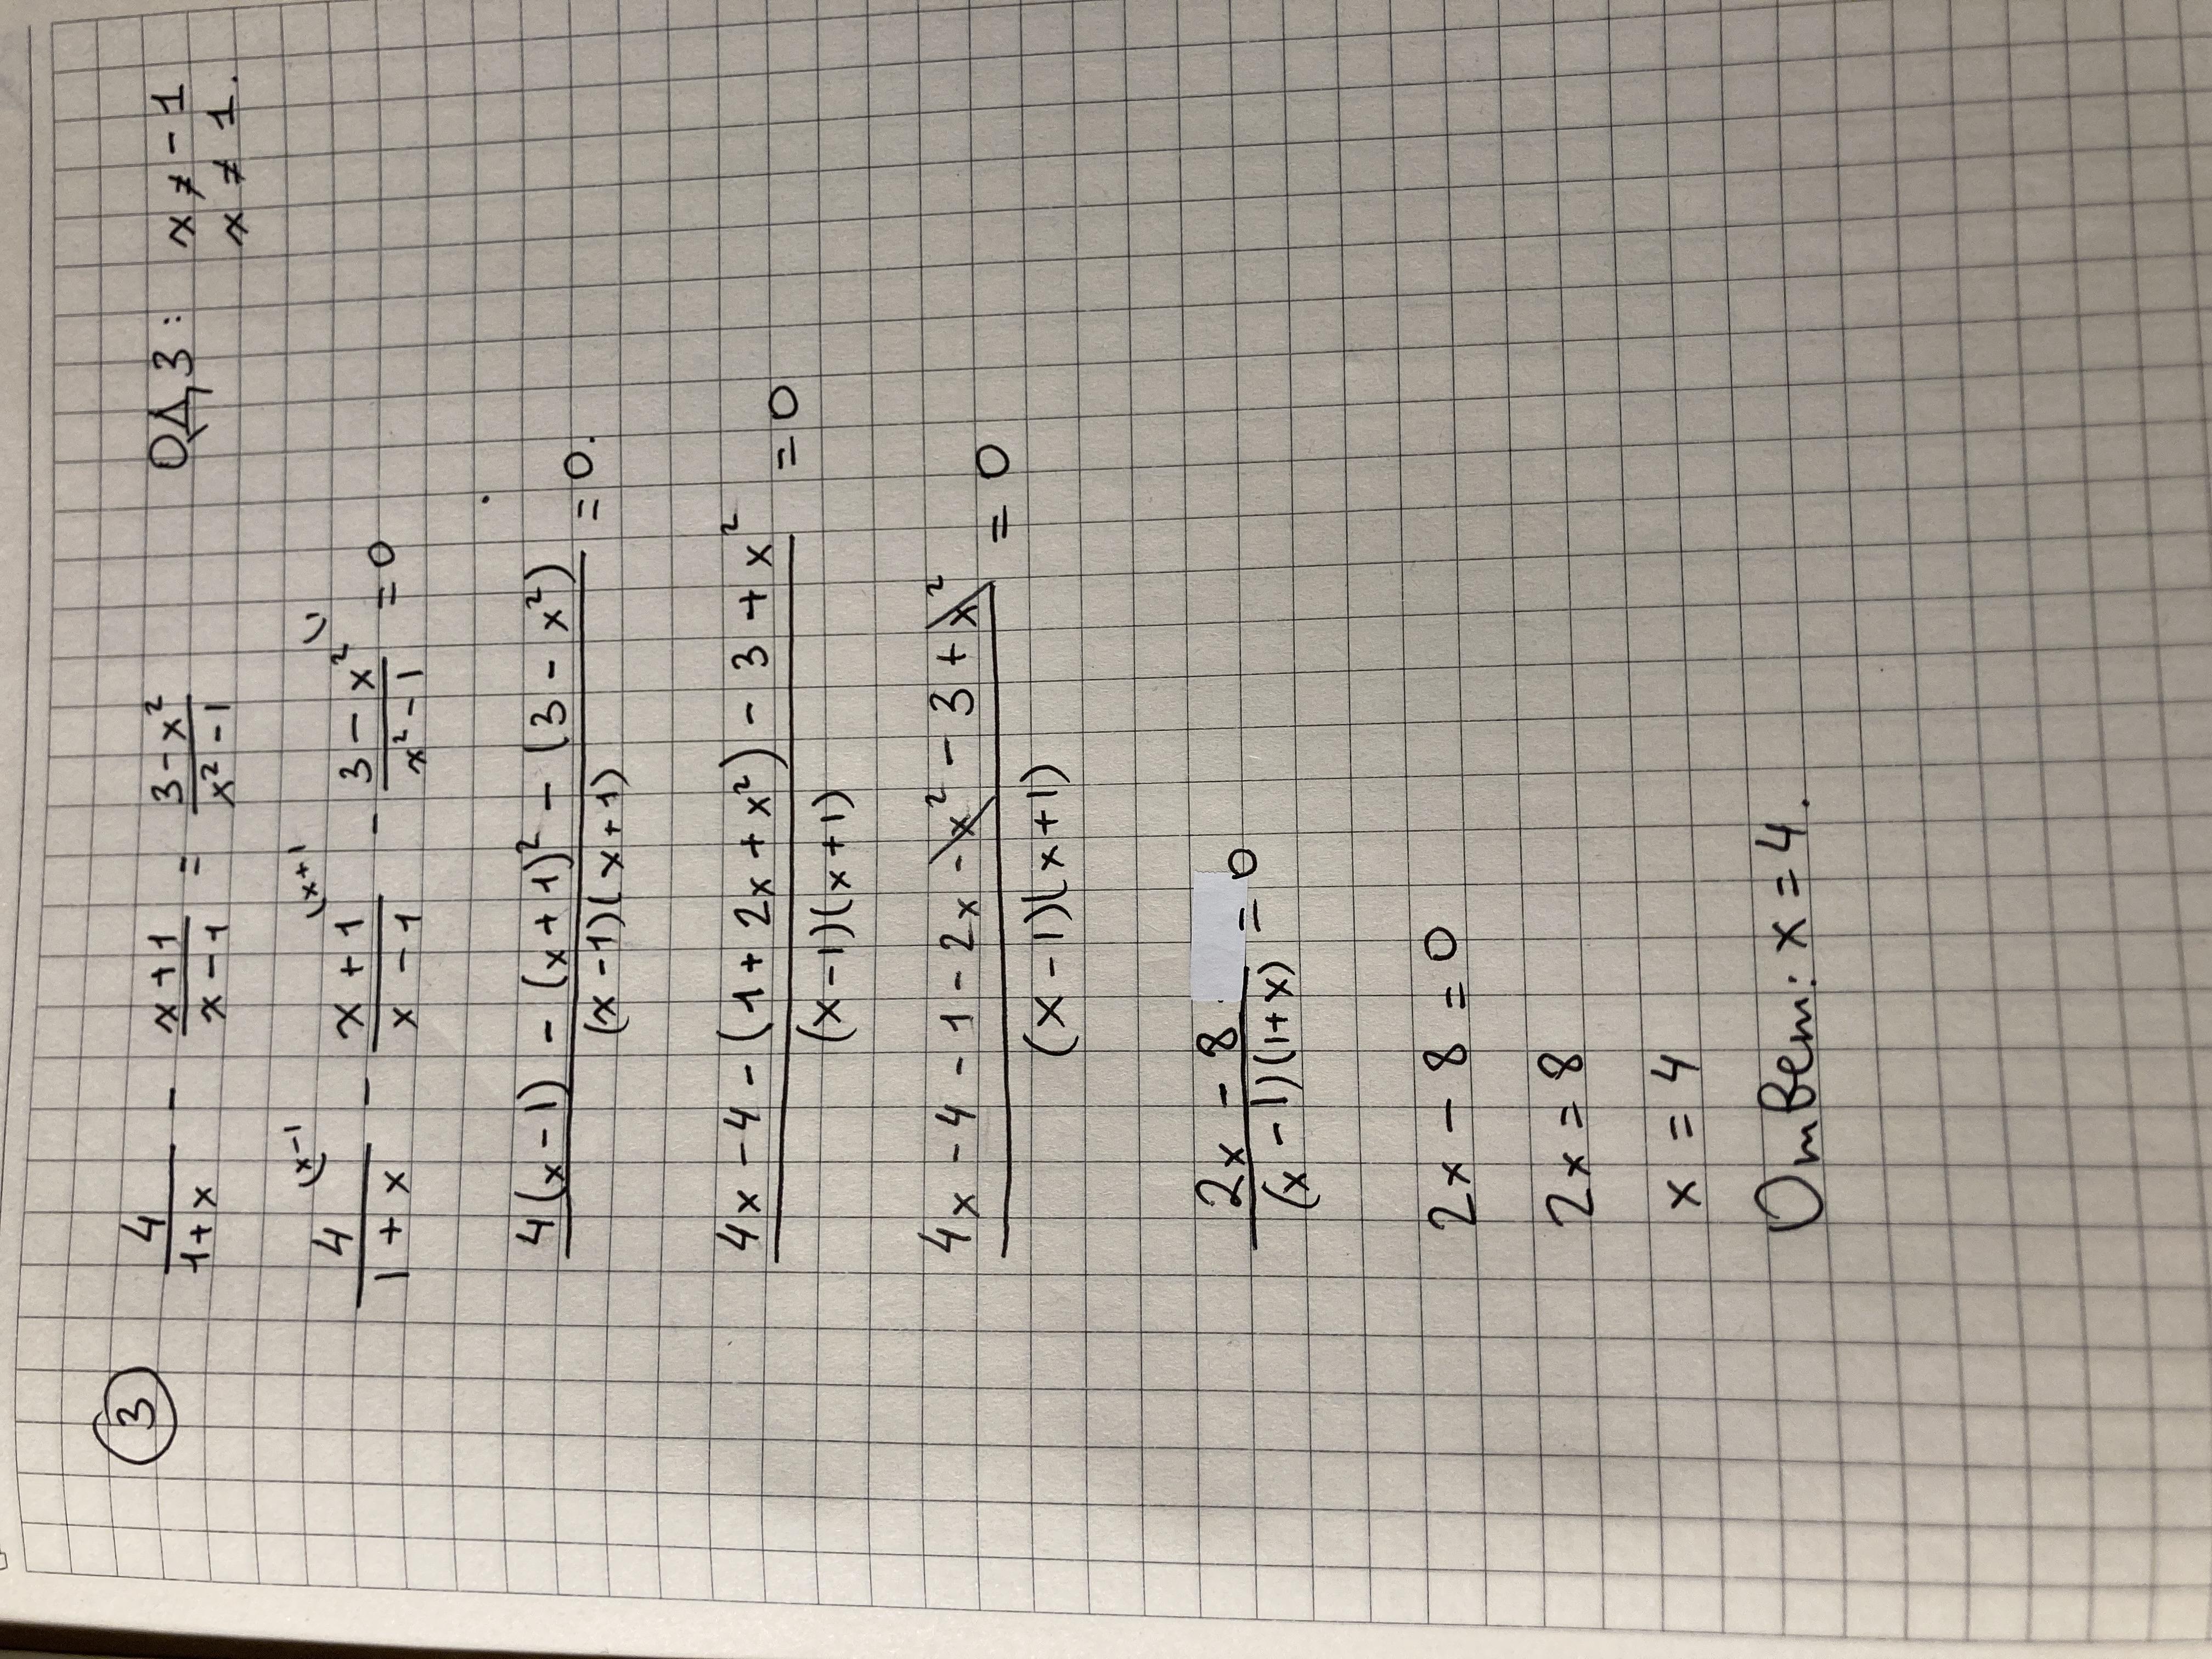 ③ 4/(1+x) - (x+1)/(x-1) = (3-x²)/(x²-1) ОДЗ: x ≠ -1
x ≠ 1.
4/(1+x) ⁽ˣ⁻¹ - (x+1)/(x-1) ⁽ˣ⁺¹ - (3-x²)/(x²-1) ⁽¹ = 0
(4(x-1) - (x+1)² - (3-x²))/((x-1)(x+1)) = 0.
(4x-4-(1+2x+x²)-3+x²)/((x-1)(x+1)) = 0
(4x-4-1-2x-x²-3+x²)/((x-1)(x+1)) = 0
(2x-8)/((x-1)(1+x)) = 0
2x-8=0
2x=8
x=4
Ответ: x=4.